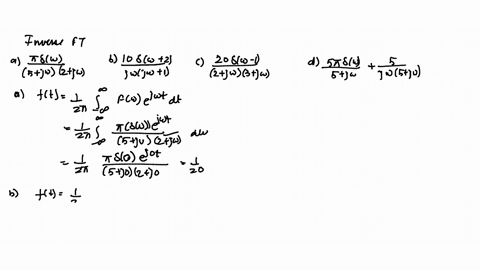 Inverse FT
a) πδ(ω) / (5+jω)(2+jω)  b) 10δ(ω+2) / jω(jω+1)  c) 20δ(ω-1) / (2+jω)(3+jω)  d) 5πδ(ω) / 5+jω + 5 / jω(5+jω)
a) f(t) = 1/2π ∫_{-∞}^{∞} F(ω) e^{jωt} dt
= 1/2π ∫_{-∞}^{∞} π(δ(ω)) e^{jωt} / (5+jω)(2+jω) dω
= 1/2π πδ(0) e^{j0t} / (5+j0)(2+j0 = 1/20
b) f(t) = 1/2